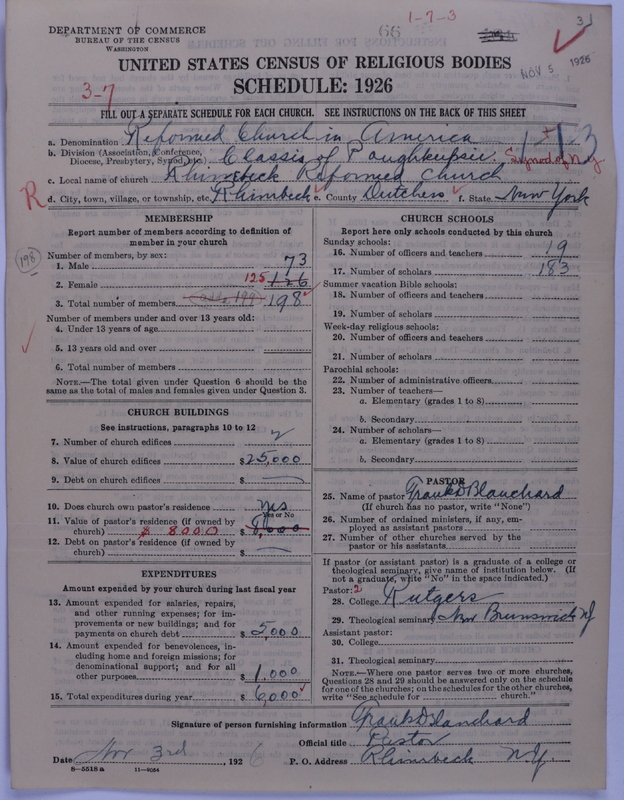 DEPARTMENT OF COMMERCE
BUREAU OF THE CENSUS
WASHINGTON
66
1-7-3
31
NOV 5 1926
UNITED STATES CENSUS OF RELIGIOUS BODIES
SCHEDULE: 1926
3-7
FILL OUT A SEPARATE SCHEDULE FOR EACH CHURCH. SEE INSTRUCTIONS ON THE BACK OF THIS SHEET
a. Denomination Reformed Church in America
b. Division (Association, Conference, Diocese, Presbytery, Synod, etc.) Classis of Poughkeepsie, Synod of N.Y.
c. Local name of church Rhinebeck Reformed Church
R
d. City, town, village, or township, etc. Rhinebeck e. County Dutchess f. State New York
MEMBERSHIP
Report number of members according to definition of
member in your church
198
Number of members, by sex:
1. Male 73
2. Female 125 126
3. Total number of members 198
Number of members under and over 13 years old:
4. Under 13 years of age
5. 13 years old and over
6. Total number of members
NOTE.—The total given under Question 6 should be the
same as the total of males and females given under Question 3.
CHURCH BUILDINGS
See instructions, paragraphs 10 to 12
7. Number of church edifices 2
8. Value of church edifices $25,000
9. Debt on church edifices $
10. Does church own pastor's residence yes
Yes or No
11. Value of pastor's residence (if owned by
church) $ 8000 $ 8,000
12. Debt on pastor's residence (if owned by
church) $
EXPENDITURES
Amount expended by your church during last fiscal year
13. Amount expended for salaries, repairs,
and other running expenses; for im-
provements or new buildings; and for
payments on church debt $ 5,000
14. Amount expended for benevolences, in-
cluding home and foreign missions; for
denominational support; and for all
other purposes $ 1,000
15. Total expenditures during year $ 6,000
CHURCH SCHOOLS
Report here only schools conducted by this church
Sunday schools:
16. Number of officers and teachers 19
17. Number of scholars 183
Summer vacation Bible schools:
18. Number of officers and teachers
19. Number of scholars
Week-day religious schools:
20. Number of officers and teachers
21. Number of scholars
Parochial schools:
22. Number of administrative officers
23. Number of teachers—
a. Elementary (grades 1 to 8)
b. Secondary
24. Number of scholars—
a. Elementary (grades 1 to 8)
b. Secondary
PASTOR
25. Name of pastor Frank D Blanchard
(If church has no pastor, write "None")
26. Number of ordained ministers, if any, em-
ployed as assistant pastors
27. Number of other churches served by the
pastor or his assistants
If pastor (or assistant pastor) is a graduate of a college or
theological seminary, give name of institution below. (If
not a graduate, write "No" in the space indicated.)
Pastor: 2
28. College Rutgers
29. Theological seminary New Brunswick NJ
Assistant pastor:
30. College
31. Theological seminary
NOTE.—Where one pastor serves two or more churches,
Questions 28 and 29 should be answered only on the schedule
for one of the churches; on the schedules for the other churches,
write "See schedule for church."
Signature of person furnishing information Frank D Blanchard
Official title Pastor
Date Nov 3rd, 1926 P. O. Address Rhinebeck N.Y.
8—5518a 11—9064